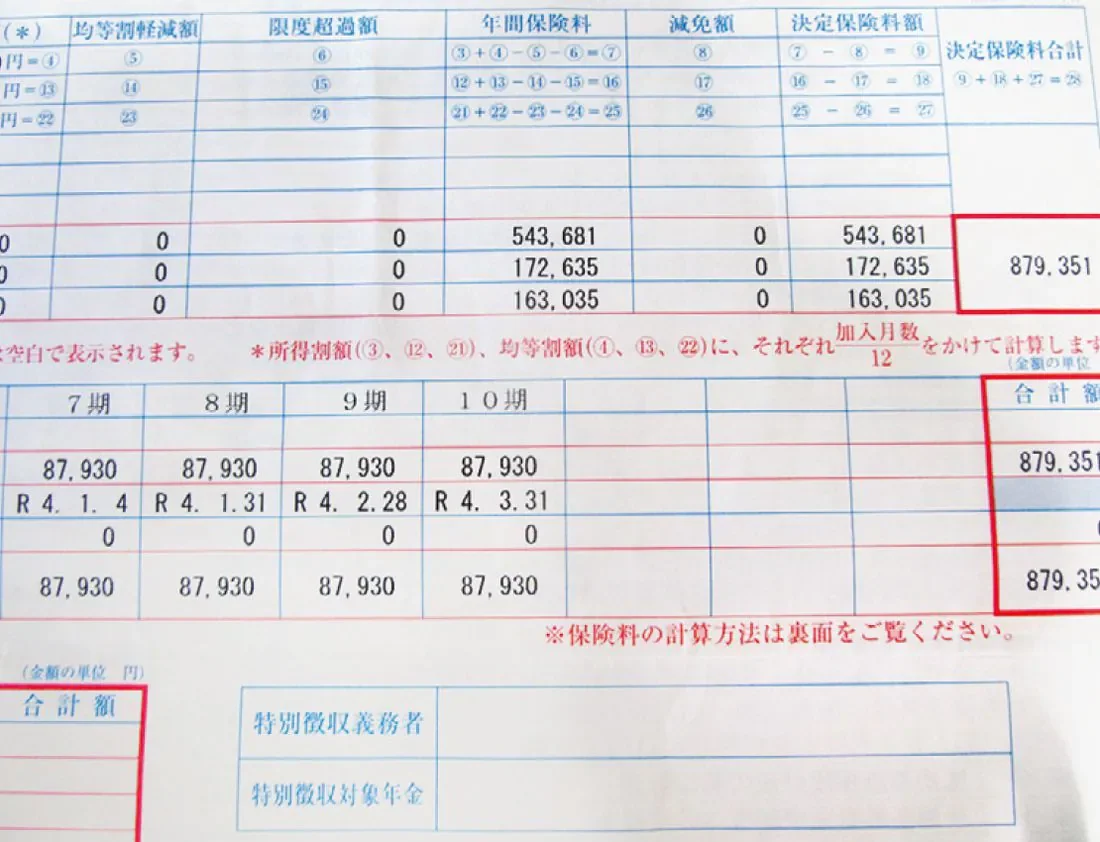 (*) 均等割軽減額 限度超過額 年間保険料 減免額 決定保険料額 決定保険料合計
円=④ ⑤ ⑥ ③+④-⑤-⑥=⑦ ⑧ ⑦ - ⑧ = ⑨ ⑨+⑱+㉗=㉘
円=⑬ ⑭ ⑮ ⑫+⑬-⑭-⑮=⑯ ⑰ ⑯ - ⑰ = ⑱
円=㉒ ㉓ ㉔ ㉑+㉒-㉓-㉔=㉕ ㉖ ㉕ - ㉖ = ㉗
0 0 0 543,681 0 543,681
0 0 0 172,635 0 172,635 879,351
0 0 0 163,035 0 163,035
は空白で表示されます。 *所得割額(③、⑫、㉑)、均等割額(④、⑬、㉒)に、それぞれ加入月数/12をかけて計算します
(金額の単位
7期 8期 9期 10期 合計額
87,930 87,930 87,930 87,930 879,351
R 4. 1. 4 R 4. 1.31 R 4. 2.28 R 4. 3.31
0 0 0 0 0
87,930 87,930 87,930 87,930 879,35
※保険料の計算方法は裏面をご覧ください。
(金額の単位 円)
合計額
特別徴収義務者
特別徴収対象年金